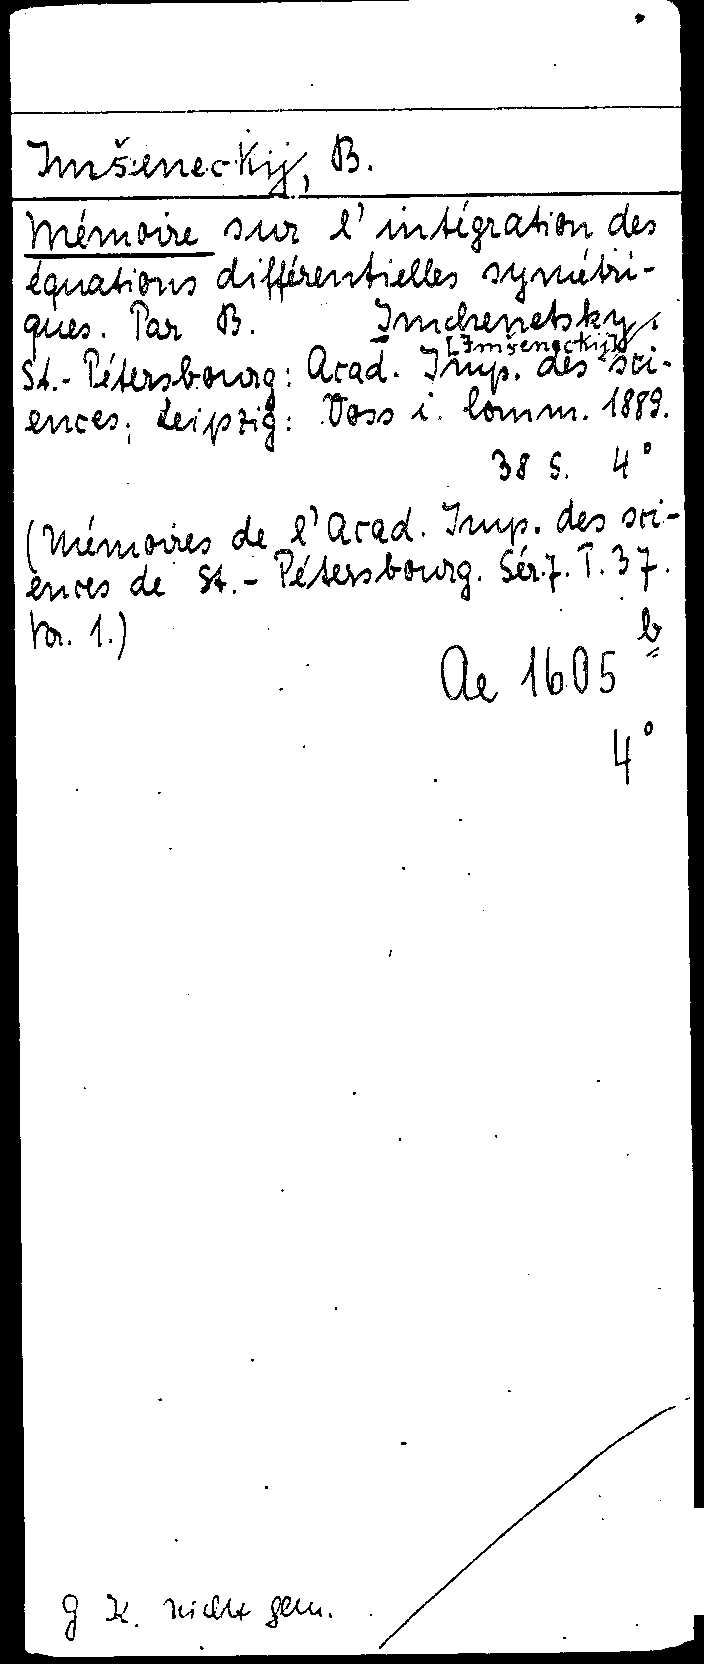 Imšeneckij, B.
Mémoire sur l'intégration des
équations différentielles symétri-
ques. Par B. Imchenetsky.
[Imšeneckij]
St.-Pétersbourg: Acad. Imp. des sci-
ences; Leipzig: Voss i. Comm. 1889.
38 S. 4°
(Mémoires de l'Acad. Imp. des sci-
ences de St.-Pétersbourg. Sér.7. T.37.
No. 1.)
Ae 1605 b
4°
g K. nicht gem.